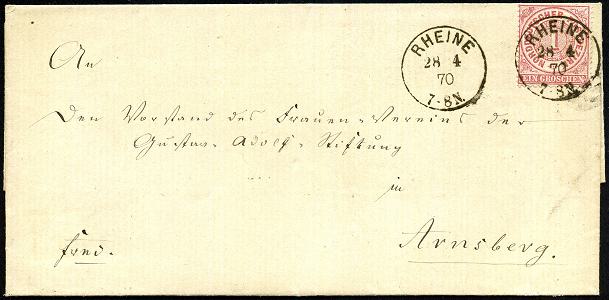 An
RHEINE
28 4
70
7-8N.
NORDDEUTSCHER POSTBEZIRK
1
EIN GROSCHEN
RHEINE
28 4
70
7-8N.
Den Vorstand des Frauen-Vereins der
Gustav-Adolf-Stiftung
in
Arnsberg.